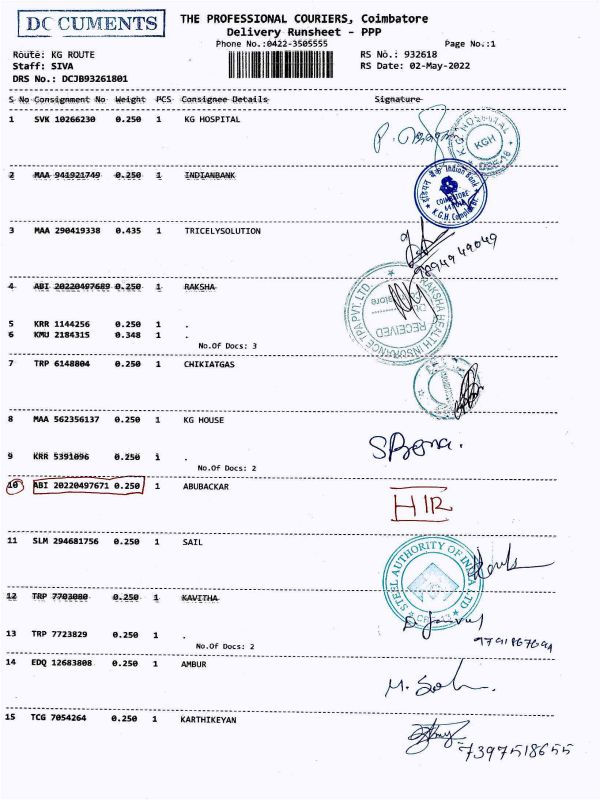 DOCUMENTS
THE PROFESSIONAL COURIERS, Coimbatore
Delivery Runsheet - PPP
Phone No.:0422-3505555
Page No.:1
Route: KG ROUTE
RS No.: 932618
Staff: SIVA
RS Date: 02-May-2022
DRS No.: DCJB93261801
S No Consignment No Weight PCS Consignee Details Signature
1 SVK 10266230 0.250 1 KG HOSPITAL
KG HOSPITAL
KGH
2 MAA 941921749 0.250 1 INDIANBANK
इंडियन बैंक Indian Bank
COIMBATORE
K.G.H. Complex Br.
3 MAA 290419338 0.435 1 TRICELYSOLUTION
9894949049
4 ABI 20220497689 0.250 1 RAKSHA
RAKSHA HEALTH INSURANCE TPA PVT. LTD.
RECEIVED
5 KRR 1144256 0.250 1 .
6 KMU 2184315 0.348 1 .
No.Of Docs: 3
7 TRP 6148804 0.250 1 CHIKIATGAS
8 MAA 562356137 0.250 1 KG HOUSE
9 KRR 5391096 0.250 1 .
No.Of Docs: 2
10 ABI 20220497671 0.250 1 ABUBACKAR
HIR
11 SLM 294681756 0.250 1 SAIL
STEEL AUTHORITY OF INDIA LTD
12 TRP 7703080 0.250 1 KAVITHA
13 TRP 7723829 0.250 1 .
No.Of Docs: 2
14 EDQ 12683808 0.250 1 AMBUR
15 TCG 7054264 0.250 1 KARTHIKEYAN
7397518655